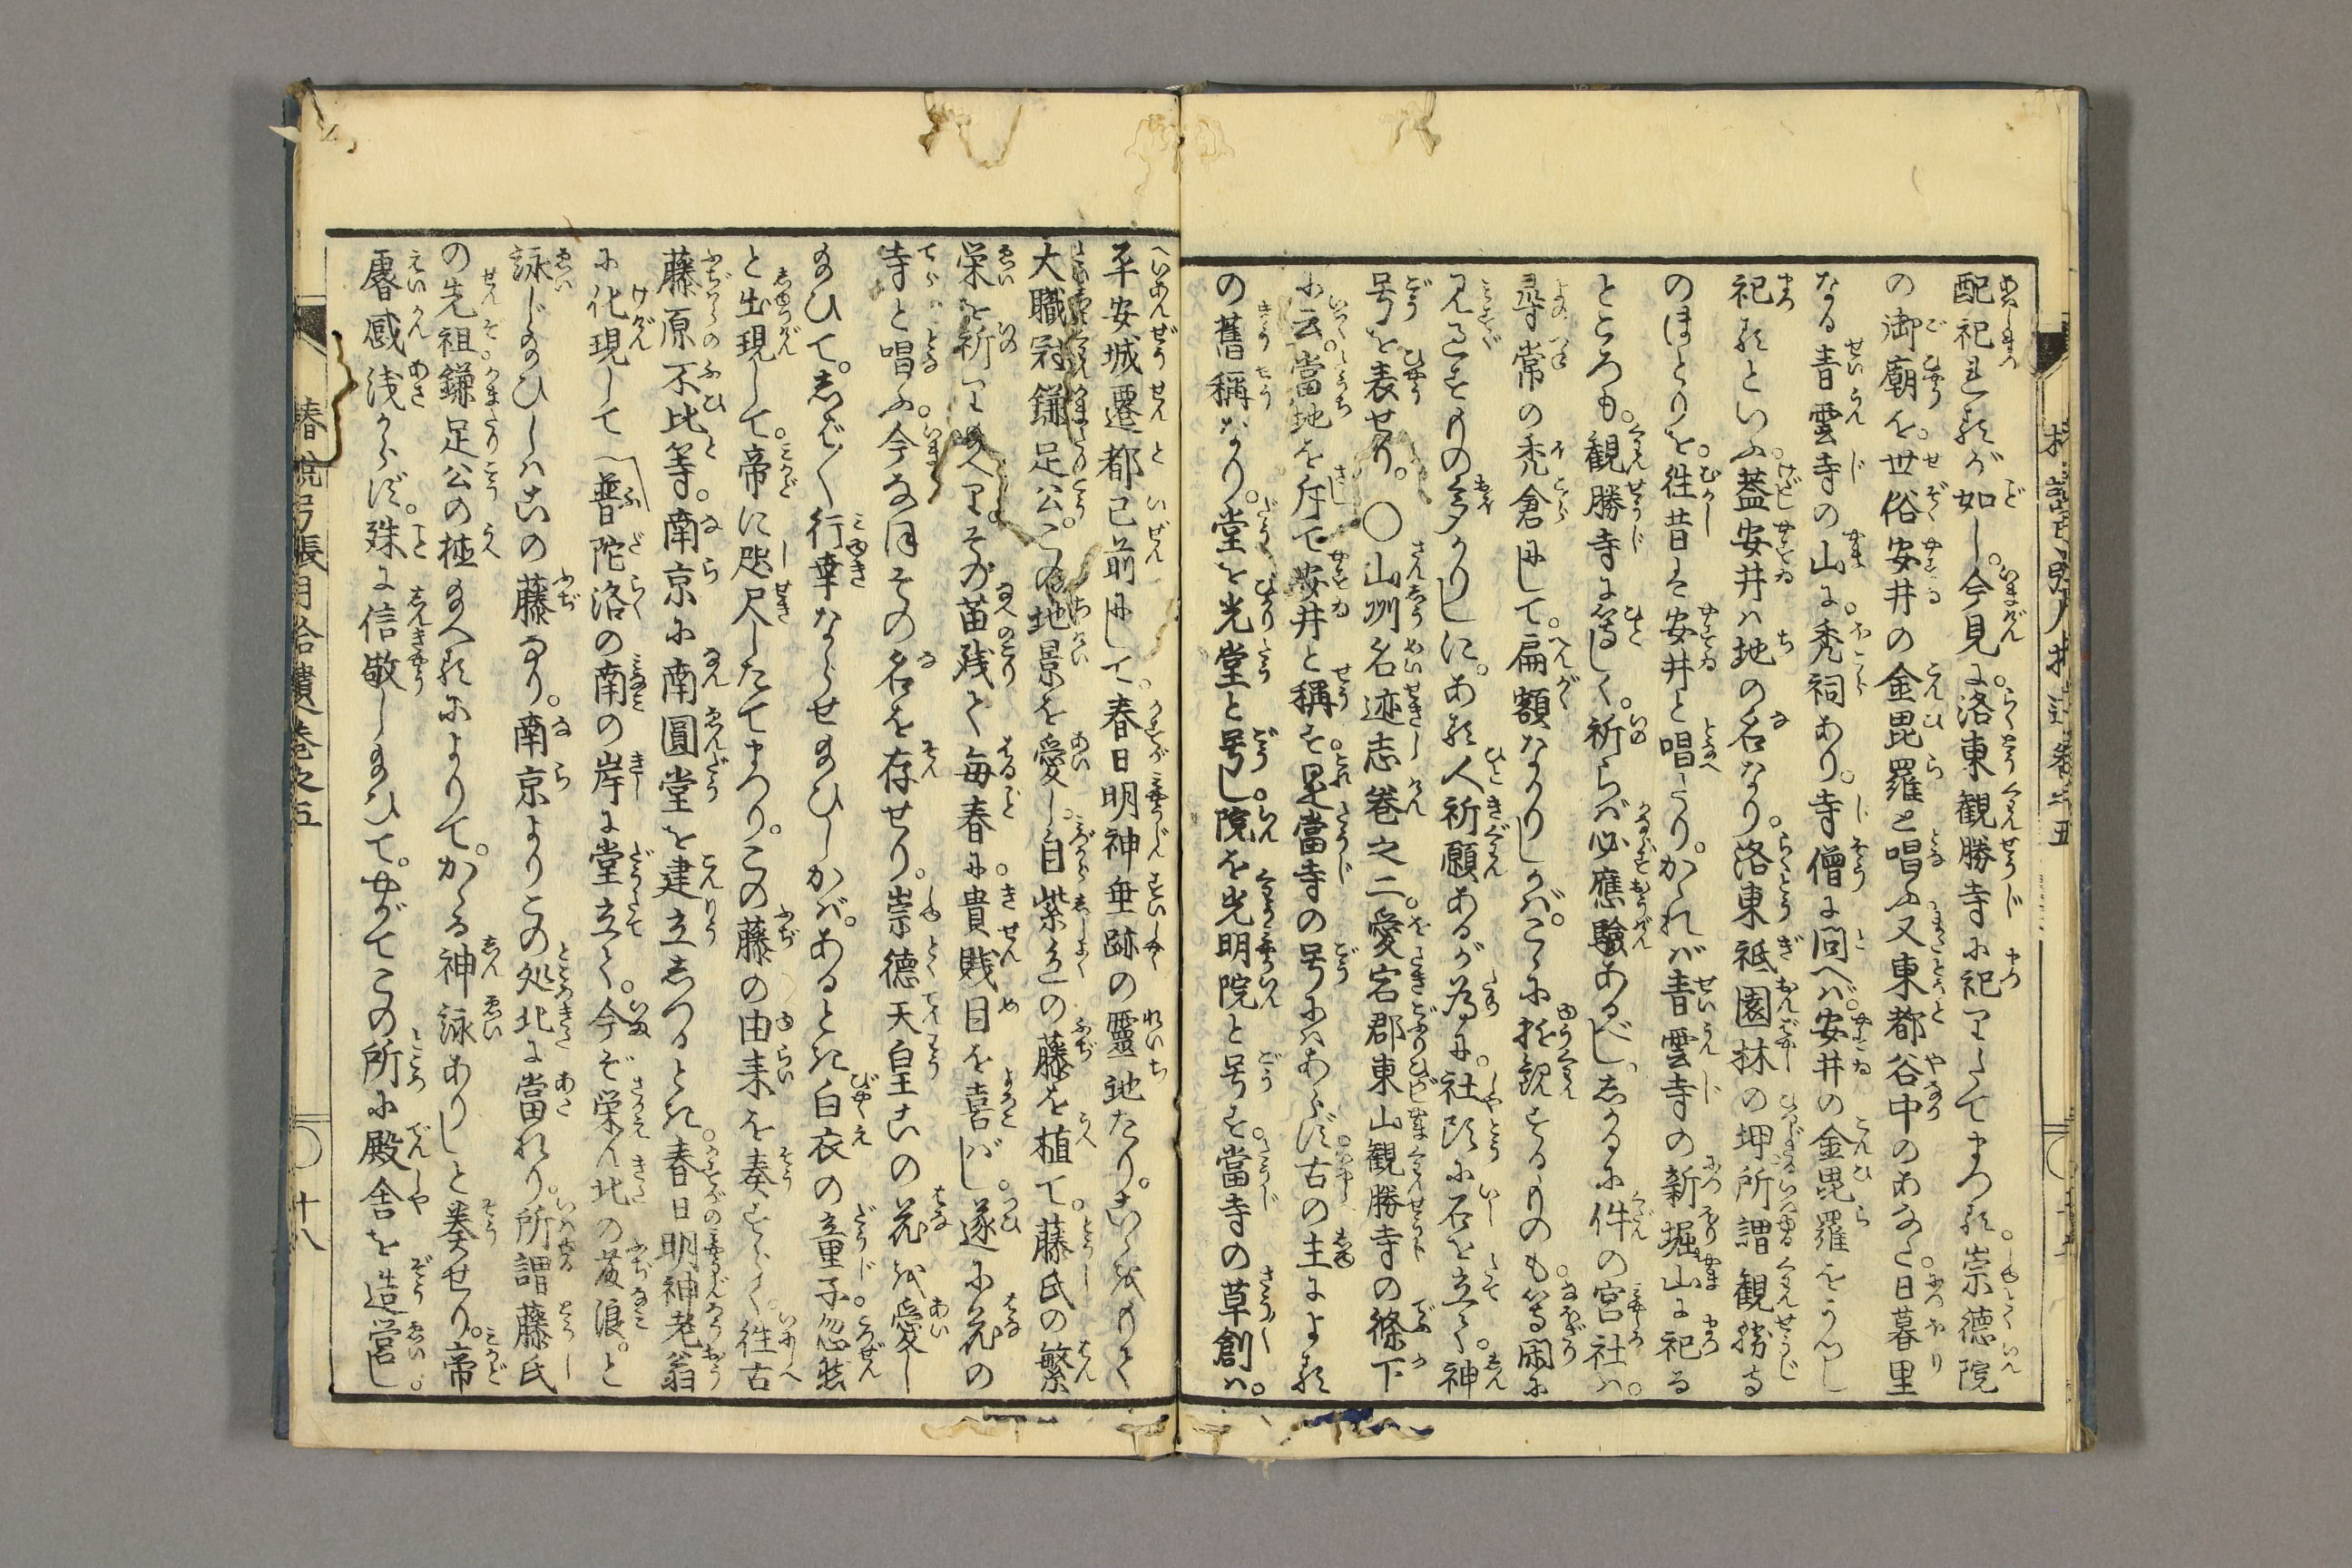 配祀れるが如し。今見に。洛東観勝寺に祀りたてまつる。崇徳院
の御廟を。世俗安井の金毘羅と唱ふ又東都谷中のあなた。日暮里
なる青雲寺の山に。禿祠あり。寺僧に問へば。安井の金毘羅をうつし
祀るといふ。蓋安井は地の名なり。洛東祇園林の坤所謂観勝寺
のほとりを。往昔は安井と唱へたり。かゝれば青雲寺の新堀山に祀る
ところも。観勝寺に等しく。祈らば必應驗あるべし。しかるに件の宮社は。
尋常の禿倉にして。扁額なかりしかば。こゝに遊観するものも。等閑に
見過すもの多かりしに。ある人祈願あるが為に。社頭に石を立て。神
号を表せり。○山州名迹志巻之二。愛宕郡東山観勝寺の條下
に云。當地を斥て安井と稱す。是當寺の号にはあらず。古の主による
の舊稱なり。堂を光堂と号し。院を光明院と号す。當寺の草創は。
平安城遷都已前にして。春日明神垂跡の靈地たり。こゝをもて
大職冠鎌足公。この地景を愛し。自紫色の藤を植て。藤氏の繁
栄を祈り給へり。その苗残て毎春に。貴賎目を喜ばし。遂に花の
寺と唱ふ。今なほその名を存せり。崇德天皇この花を愛し
給ひて。しば〳〵行幸ならせ給ひしかば。あるとき白衣の童子忽然
と出現して。帝に咫尺したてまつり。この藤の由来を奏すらく。往古
藤原不比等。南京に南圓堂を建立しつるとき。春日明神老翁
に化現して〽普陀洛の南の岸に堂立て。今ぞ栄ん北の藤浪。と
詠じ給ひしはこの藤なり。南京よりこの処北に當れり。所謂藤氏
の先祖。鎌足公の植給へるによりて。かゝる神詠ありしと奏せり。帝
睿感浅からず。殊に信敬し給ひて。やがてこの所に殿舎を造営し。
椿説弓張月拾遺巻之五
○十八